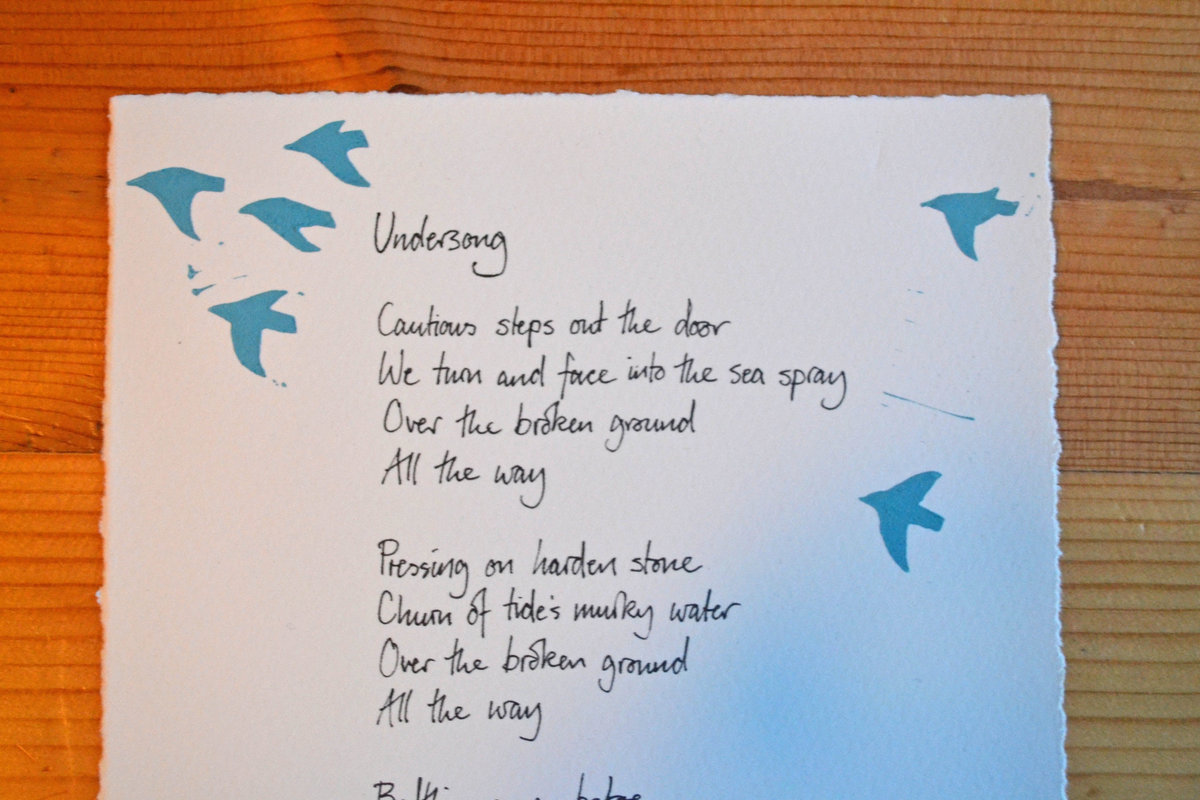 Undersong
Cautious steps out the door
We turn and face into the sea spray
Over the broken ground
All the way
Pressing on harden stone
Churn of tide's murky water
Over the broken ground
All the way